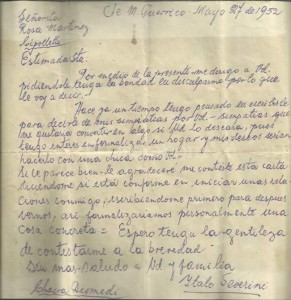 Cte M. Guerrico. Mayo 27 de 1952
Señorita
Rosa Martinez
Cipolletti
Estimada Sta.
Por medio de la presente me dirijo a Vd.
pidiendole tenga la bondad en disculparme por lo que
le voy a decir.
Hace ya un tiempo tengo pensado en escribirle
para decirle de mis simpatias por Vd = simpatias que
me gustaria convertir en algo si Vd lo desearia, pues
tengo interes en formalizar un hogar y mis deseos serian
hacerlo con una chica como Vd =
Si le parece bien le agradecere me conteste esta carta
diciendome si está conforme en iniciar unas rela
ciones conmigo, escribiendome primero para despues
vernos, asi formalizariamos personalmente una
cosa concreta = Espero tenga la gentileza
de contestarme a la brevedad =
Sin mas saludo a Vd y familia
Italo Severini
Chacra